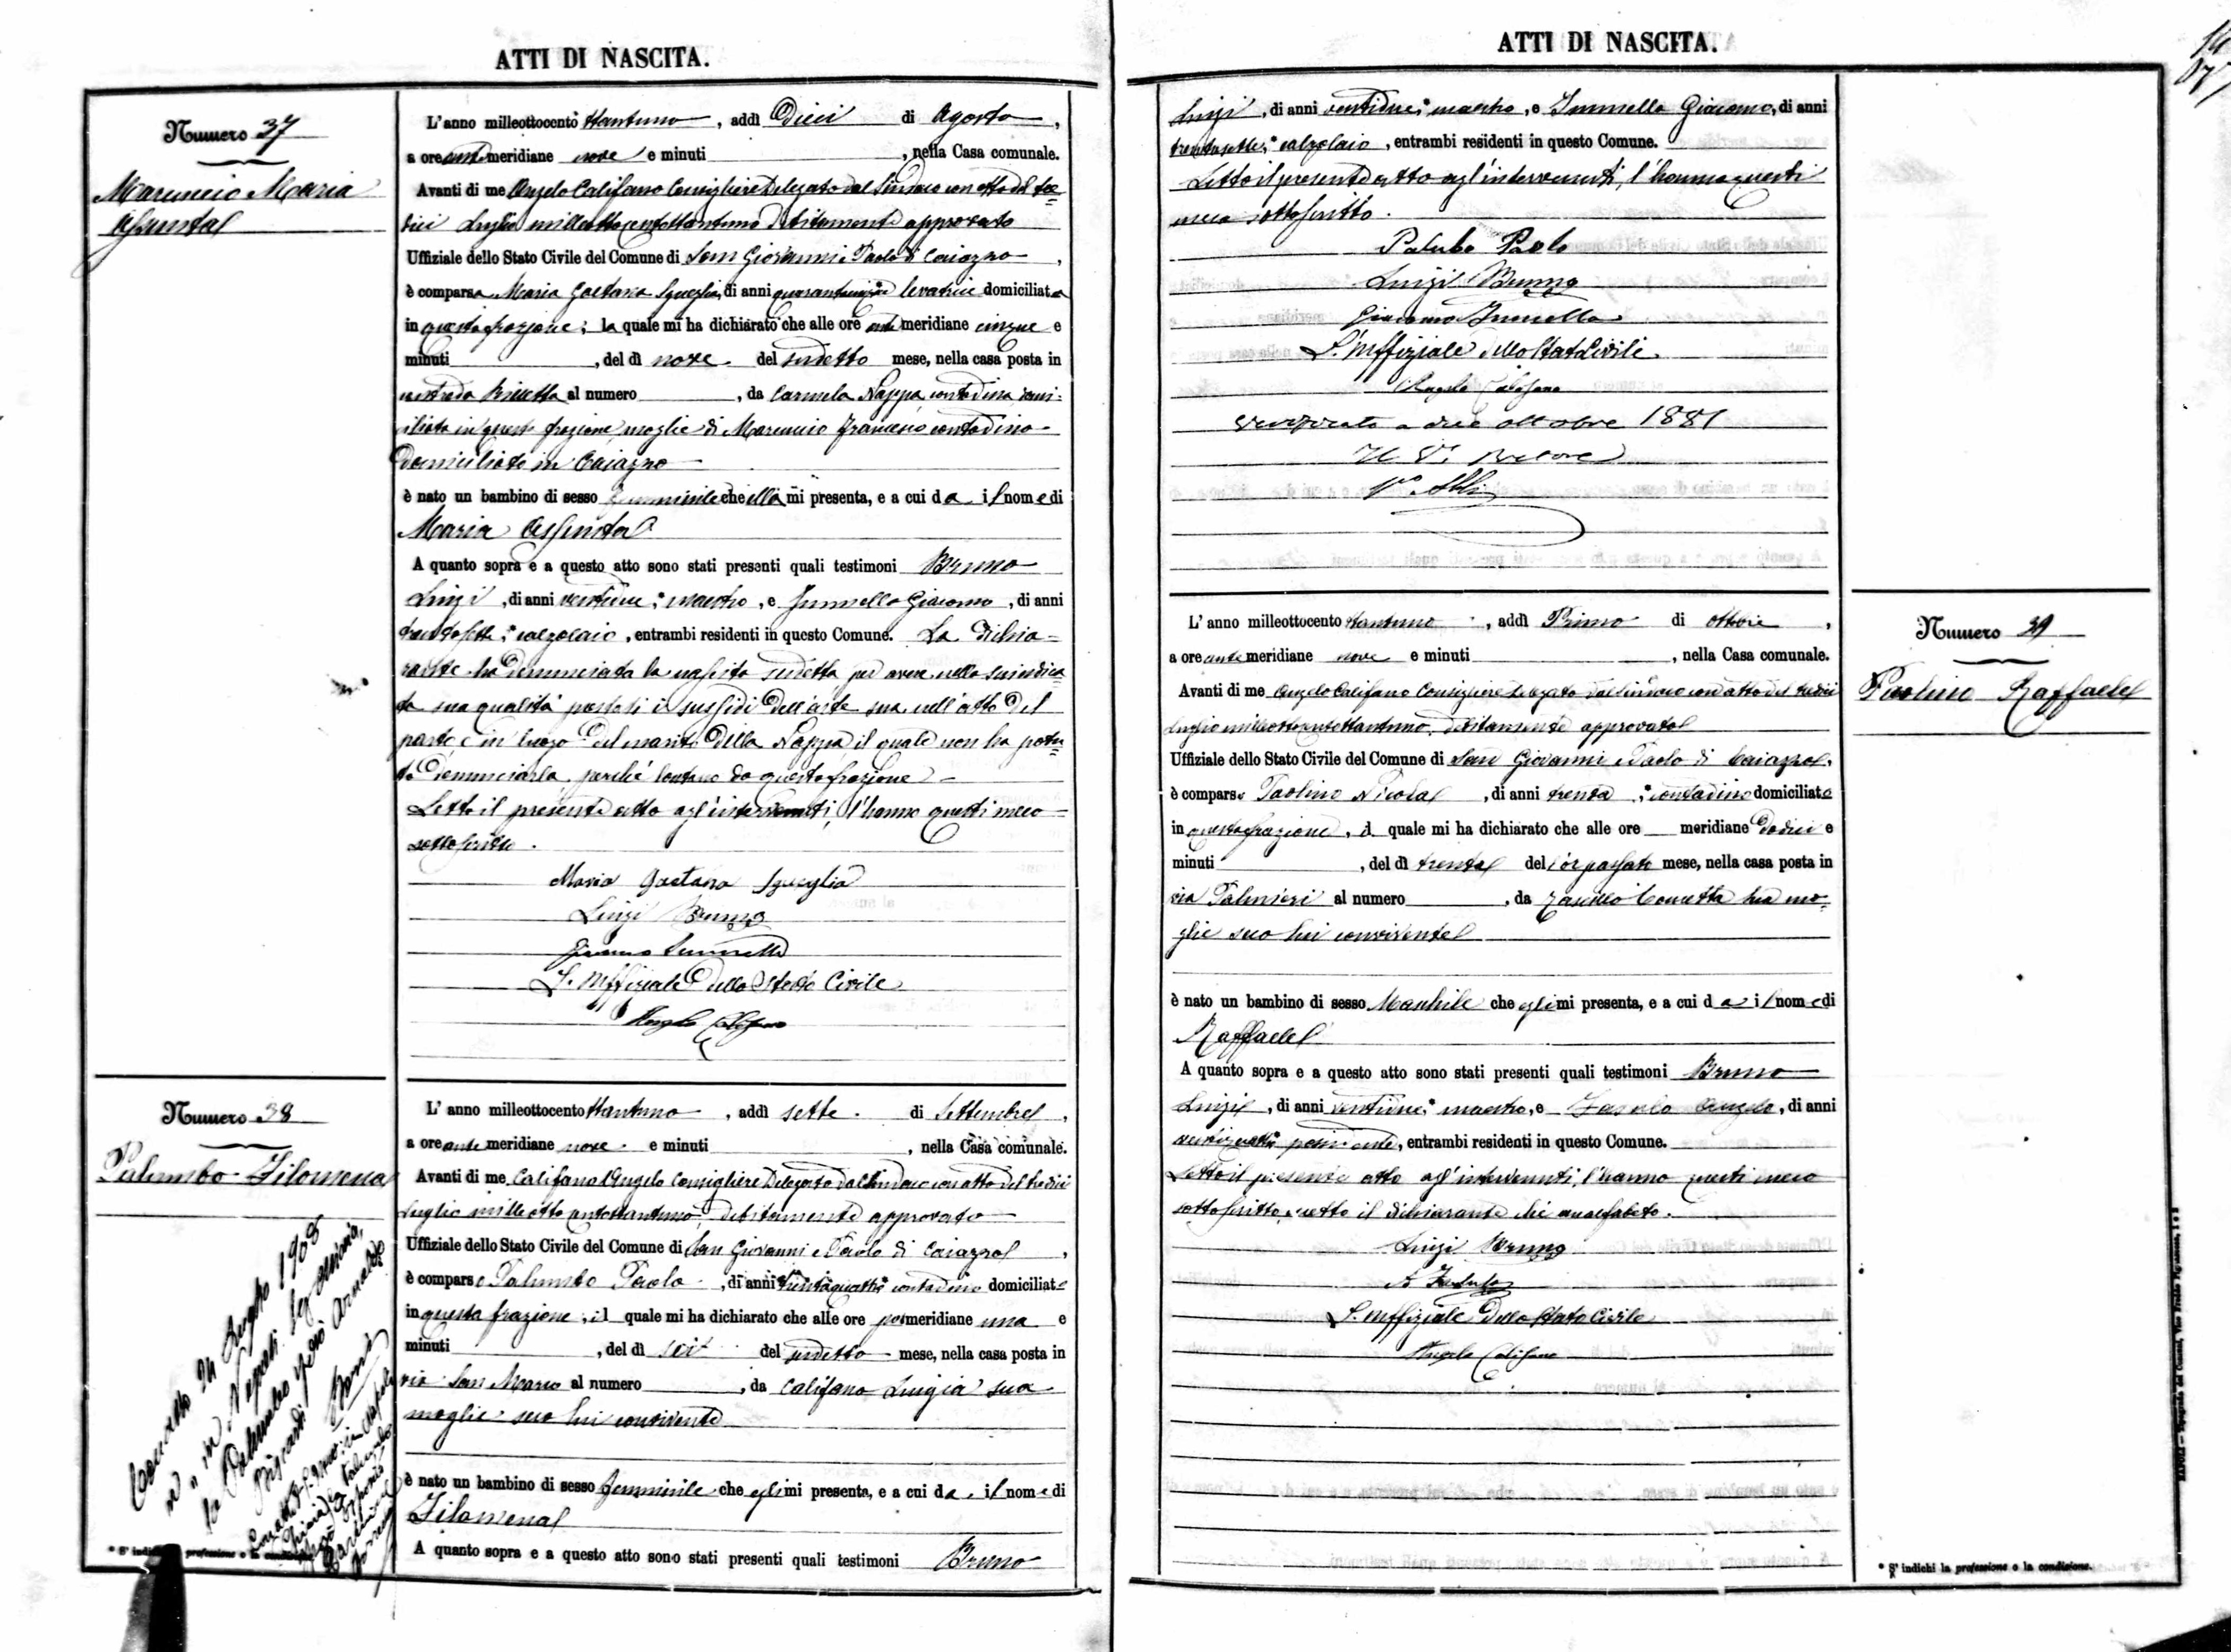 ATTI DI NASCITA.
Numero 37
Marcuccio Maria
Assunta
L'anno milleottocento ottantuno, addì Dieci di Agosto,
a ore antemeridiane nove e minuti, nella Casa comunale.
Avanti di me Angelo Califano Consigliere Delegato dal Sindaco con atto del tre=
dici Luglio milleottocentottantuno debitamente approvato
Uffiziale dello Stato Civile del Comune di San Giovanni e Paolo di Caiazzo,
è comparsa Maria Gaetana Sgueglia, di anni levatrice domiciliata
in questa frazione; la quale mi ha dichiarato che alle ore antemeridiane cinque e
minuti, del dì nove del sudetto mese, nella casa posta in
contrada al numero, da Carmela Nappa contadina domi=
ciliata in questa frazione, moglie di Marcuccio Francesco contadino
domiciliato in Caiazzo
è nato un bambino di sesso femminile che ella mi presenta, e a cui da il nome di
Maria Assunta
A quanto sopra e a questo atto sono stati presenti quali testimoni Bruno
Luigi, di anni ventidue, maestro, e Iannella Giacomo, di anni
trentasette, calzolaio, entrambi residenti in questo Comune. La dichia=
rante ha denunciata la nascita sudetta per avere nella suindica
ta sua qualità prestati i sussidi dell'arte sua nell'atto del
parto, e in luogo del marito della Nappa, il quale non ha potu=
to denunciarla, perché lontano da questa frazione
Letto il presente atto agl'intervenuti, l'hanno questi meco
sottoscritto.
Maria Gaetana Sgueglia
Luigi Bruno
Giacomo Iannella
L'Uffiziale dello Stato Civile
Angelo Califano
Numero 38
Palumbo Filomena
L'anno milleottocento ottantuno, addì sette di Settembre,
a ore antemeridiane nove e minuti, nella Casa comunale.
Avanti di me Califano Angelo Consigliere Delegato dal Sindaco con atto del tredici
Luglio milleottocentottantuno, debitamente approvato
Uffiziale dello Stato Civile del Comune di San Giovanni e Paolo di Caiazzo,
è comparso Palumbo Paolo, di anni trentaquattro contadino domiciliato
in questa frazione, il quale mi ha dichiarato che alle ore pomeridiane una e
minuti, del dì sei del sudetto mese, nella casa posta in
via San Marco al numero, da Califano Luigia sua
moglie seco lui convivente
è nato un bambino di sesso femminile che egli mi presenta, e a cui da il nome di
Filomena
A quanto sopra e a questo atto sono stati presenti quali testimoni Bruno
1908
in Napoli
la Palumbo
ATTI DI NASCITA.
Luigi, di anni ventidue, maestro, e Iannella Giacomo, di anni
trentasette, calzolaio, entrambi residenti in questo Comune.
Letto il presente atto agl'intervenuti, l'hanno questi
meco sottoscritto.
Palubo Paolo
Luigi Bruno
Giacomo Iannella
L'Uffiziale dello Stato Civile
Angelo Califano
Verificato a ottobre 1881
Il V. Pretore
L'anno milleottocento ottantuno, addì Primo di Ottobre,
a ore antemeridiane nove e minuti, nella Casa comunale.
Avanti di me Angelo Califano Consigliere Delegato dal Sindaco con atto del tredici
Luglio milleottocentottantuno, debitamente approvato
Uffiziale dello Stato Civile del Comune di San Giovanni e Paolo di Caiazzo,
è comparso Paolino Nicola, di anni trenta, contadino domiciliato
in questa frazione, il quale mi ha dichiarato che alle ore meridiane dodici e
minuti, del dì trenta dell'or passato mese, nella casa posta in
via Palmieri al numero, da Concetta sua mo=
glie seco lui convivente
è nato un bambino di sesso Maschile che egli mi presenta, e a cui da il nome di
Raffaele
A quanto sopra e a questo atto sono stati presenti quali testimoni Bruno
Luigi, di anni ventidue, maestro, e Angelo, di anni
possidente, entrambi residenti in questo Comune.
Letto il presente atto agl'intervenuti, l'hanno questi meco
sottoscritto, eccetto il dichiarante chè analfabeta.
Luigi Bruno
L'Uffiziale dello Stato Civile
Angelo Califano
Numero 39
Paolino Raffaele
* S' indichi la professione o la condizione.